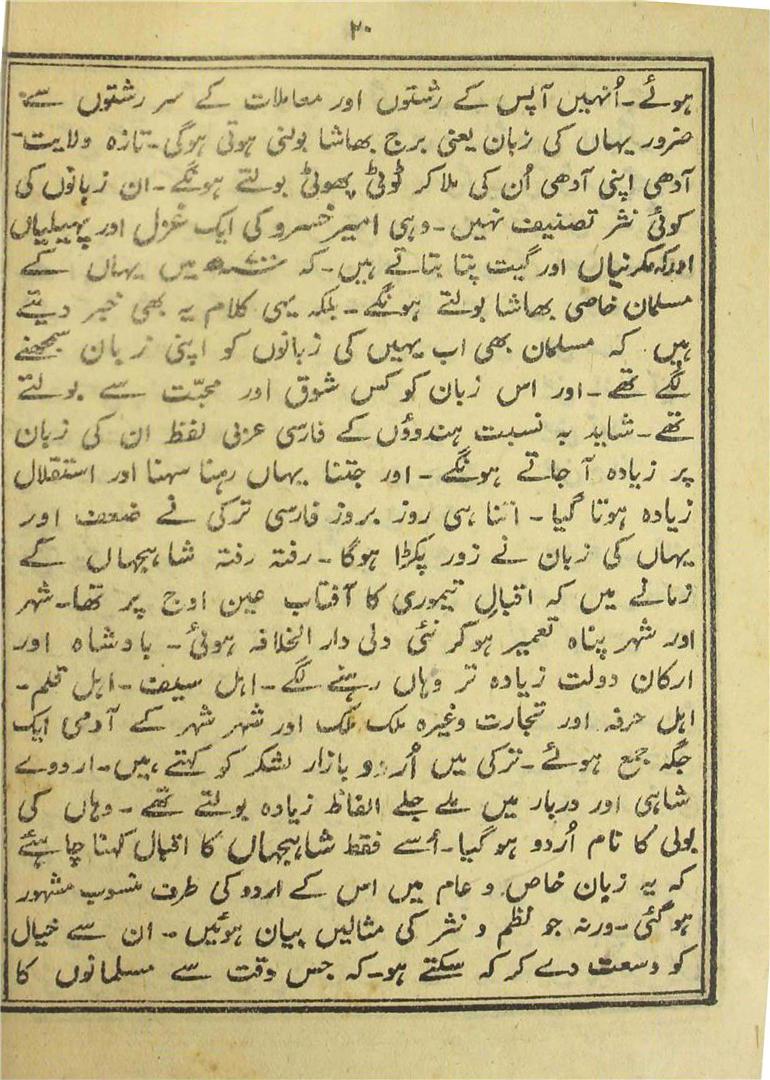 ۲۰
ہوئے۔ اُنہیں آپس کے رشتوں اور معاملات کے سر رشتوں سے
ضرور یہاں کی زبان یعنی برج بھاشا بولنی ہوتی ہوگی۔ تازہ ولایت۔
آدھی اپنی آدھی اُن کی ملا کر ٹوٹی پھوٹی بولتے ہونگے۔ ان زبانوں کی
کوئی نثر تصنیف نہیں۔ وہی امیر خسرو کی ایک غزل اور پہیلیاں
اور کہ مکرنیاں اور گیت پتا بتاتے ہیں۔ کہ میں یہاں کے
مسلمان خاصی بھاشا بولتے ہونگے۔ بلکہ یہی کلام یہ بھی خبر دیتے
ہیں کہ مسلمان بھی اب یہیں کی زبانوں کو اپنی زبان سمجھنے
لگے تھے۔ اور اس زبان کو کس شوق اور محبّت سے بولتے
تھے۔ شاید بہ نسبت ہندوؤں کے فارسی عربی لفظ ان کی زبان
پر زیادہ آ جاتے ہونگے۔ اور جتنا یہاں رہنا سہنا اور استقلال
زیادہ ہوتا گیا۔ اتنا ہی روز بروز فارسی ترکی نے ضعف اور
یہاں کی زبان نے زور پکڑا ہوگا۔ رفتہ رفتہ شاہجہاں کے
زمانے میں کہ اقبالِ تیموری کا آفتاب عین اوج پر تھا۔ شہر
اور شہر پناہ تعمیر ہو کر نئی دلی دار الخلافہ ہوئی۔ بادشاہ اور
ارکان دولت زیادہ تر وہاں رہنے لگے۔ اہل سیف۔ اہل قلم۔
اہل حرفہ اور تجارت وغیرہ ملک ملک اور شہر شہر کے آدمی ایک
جگہ جمع ہوئے۔ ترکی میں اُردو بازار لشکر کو کہتے ہیں۔ اردوے
شاہی اور دربار میں ملے جلے الفاظ زیادہ بولتے تھے۔ وہاں کی
بولی کا نام اُردو ہو گیا۔ اُسے فقط شاہجہاں کا اقبال کہنا چاہئے
کہ یہ زبان خاص و عام میں اس کے اردو کی طرف منسوب مشہور
ہو گئی۔ ورنہ جو نظم و نثر کی مثالیں بیان ہوئیں۔ ان سے خیال
کو وسعت دے کر کہ سکتے ہو۔ کہ جس وقت سے مسلمانوں کا